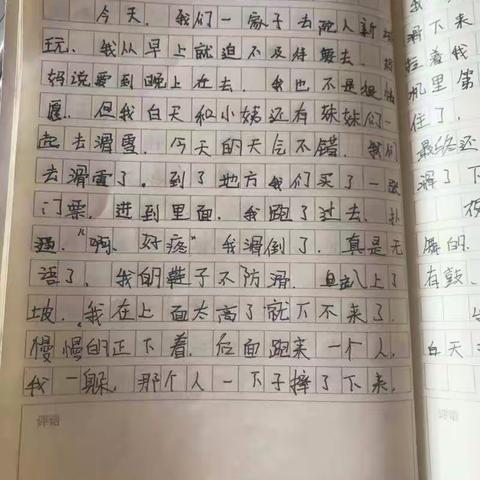 今天，我们一家子去陀人新
玩，我从早上就迫不及待要去，妈
妈说要到晚上在去，我也不是很情
愿，但我白天和小姨还有妹妹们一
起去滑雪，今天的天气不错，我们
去滑雪了。到了地方我们买了一张
门票，进到里面，我跑了过去，扑
通，"啊、好疼"我滑倒了，真是无
语了，我的鞋子不防滑，上了
坡，我在上面太高了就下不来了，
慢慢的正下着，后面跑来一个人，
我一躲，那个人一下子摔了下来，
评语
我
滑下来
拉着我
机里第
住了，
最终还
滑了下
夜
舞的，
有鼓、
白天
评语